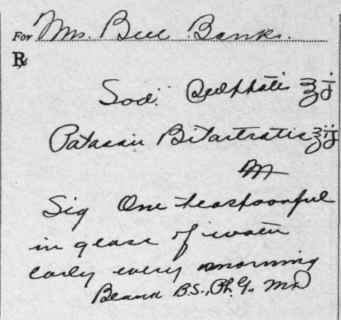 For Mrs. Bell Banks.
℞
Sod. Sulphatis ʒ i
Potassii Bitartratis ʒ ij
M
Sig One teaspoonful
in glass of water
early every morning
B.S., Ph. G. M.D